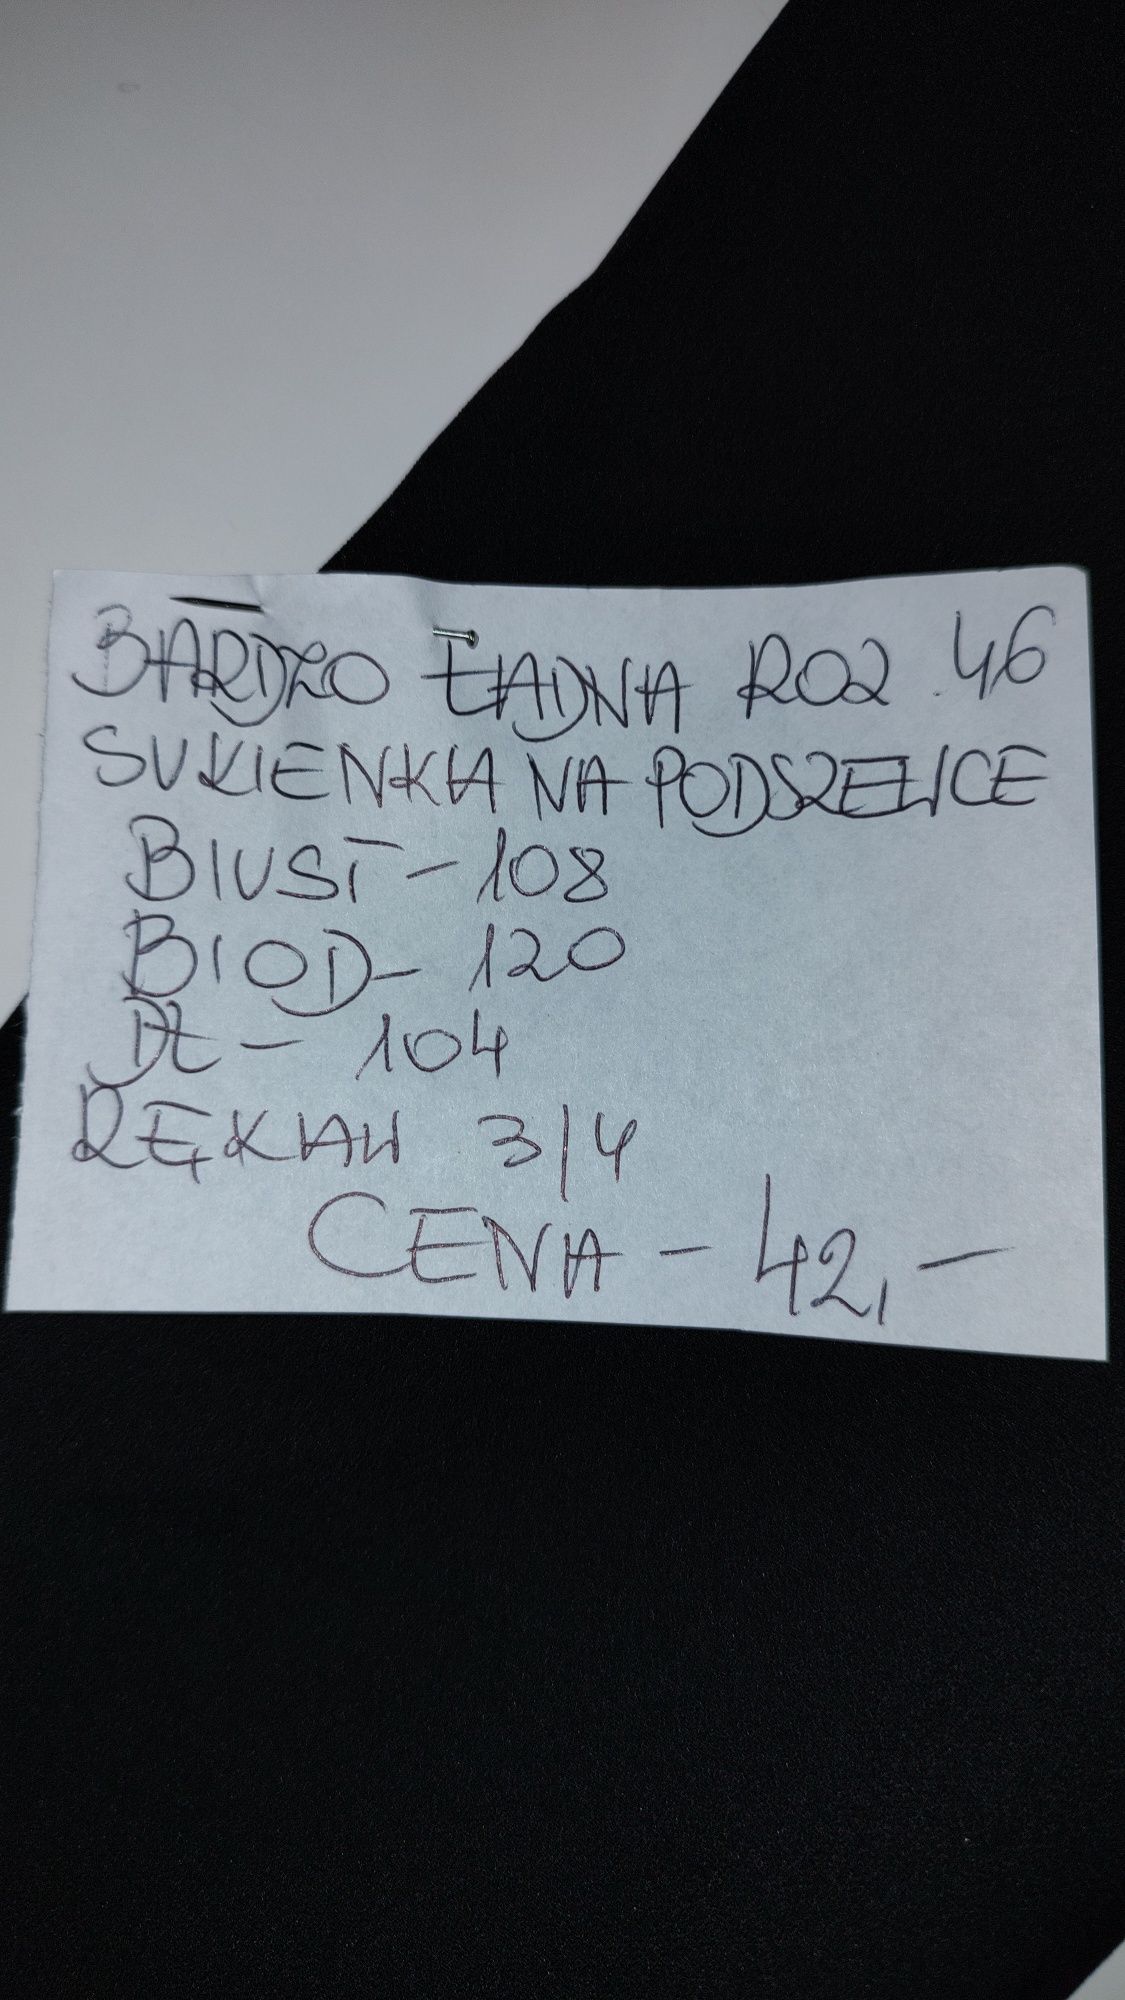 BARDZO ŁADNA ROZ. 46
SUKIENKA NA PODSZEWCE
BIUST - 108
BIOD - 120
DŁ - 104
RĘKAW 3/4
CENA - 42,-